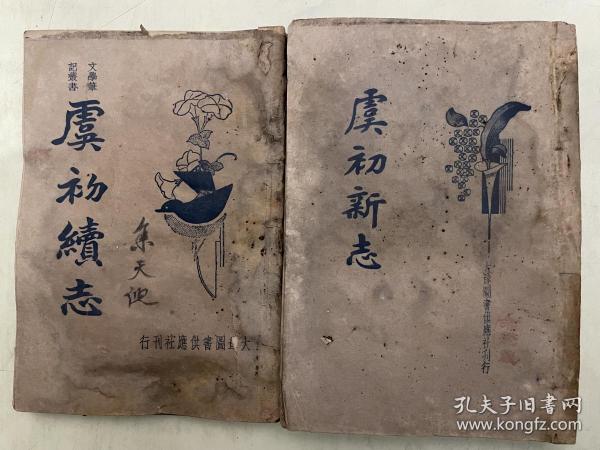 文學筆
記叢書
虞初續志
大達圖書供應社刊行
虞初新志
圖書供應社刊行
孔夫子旧书网
www.kongfz.com